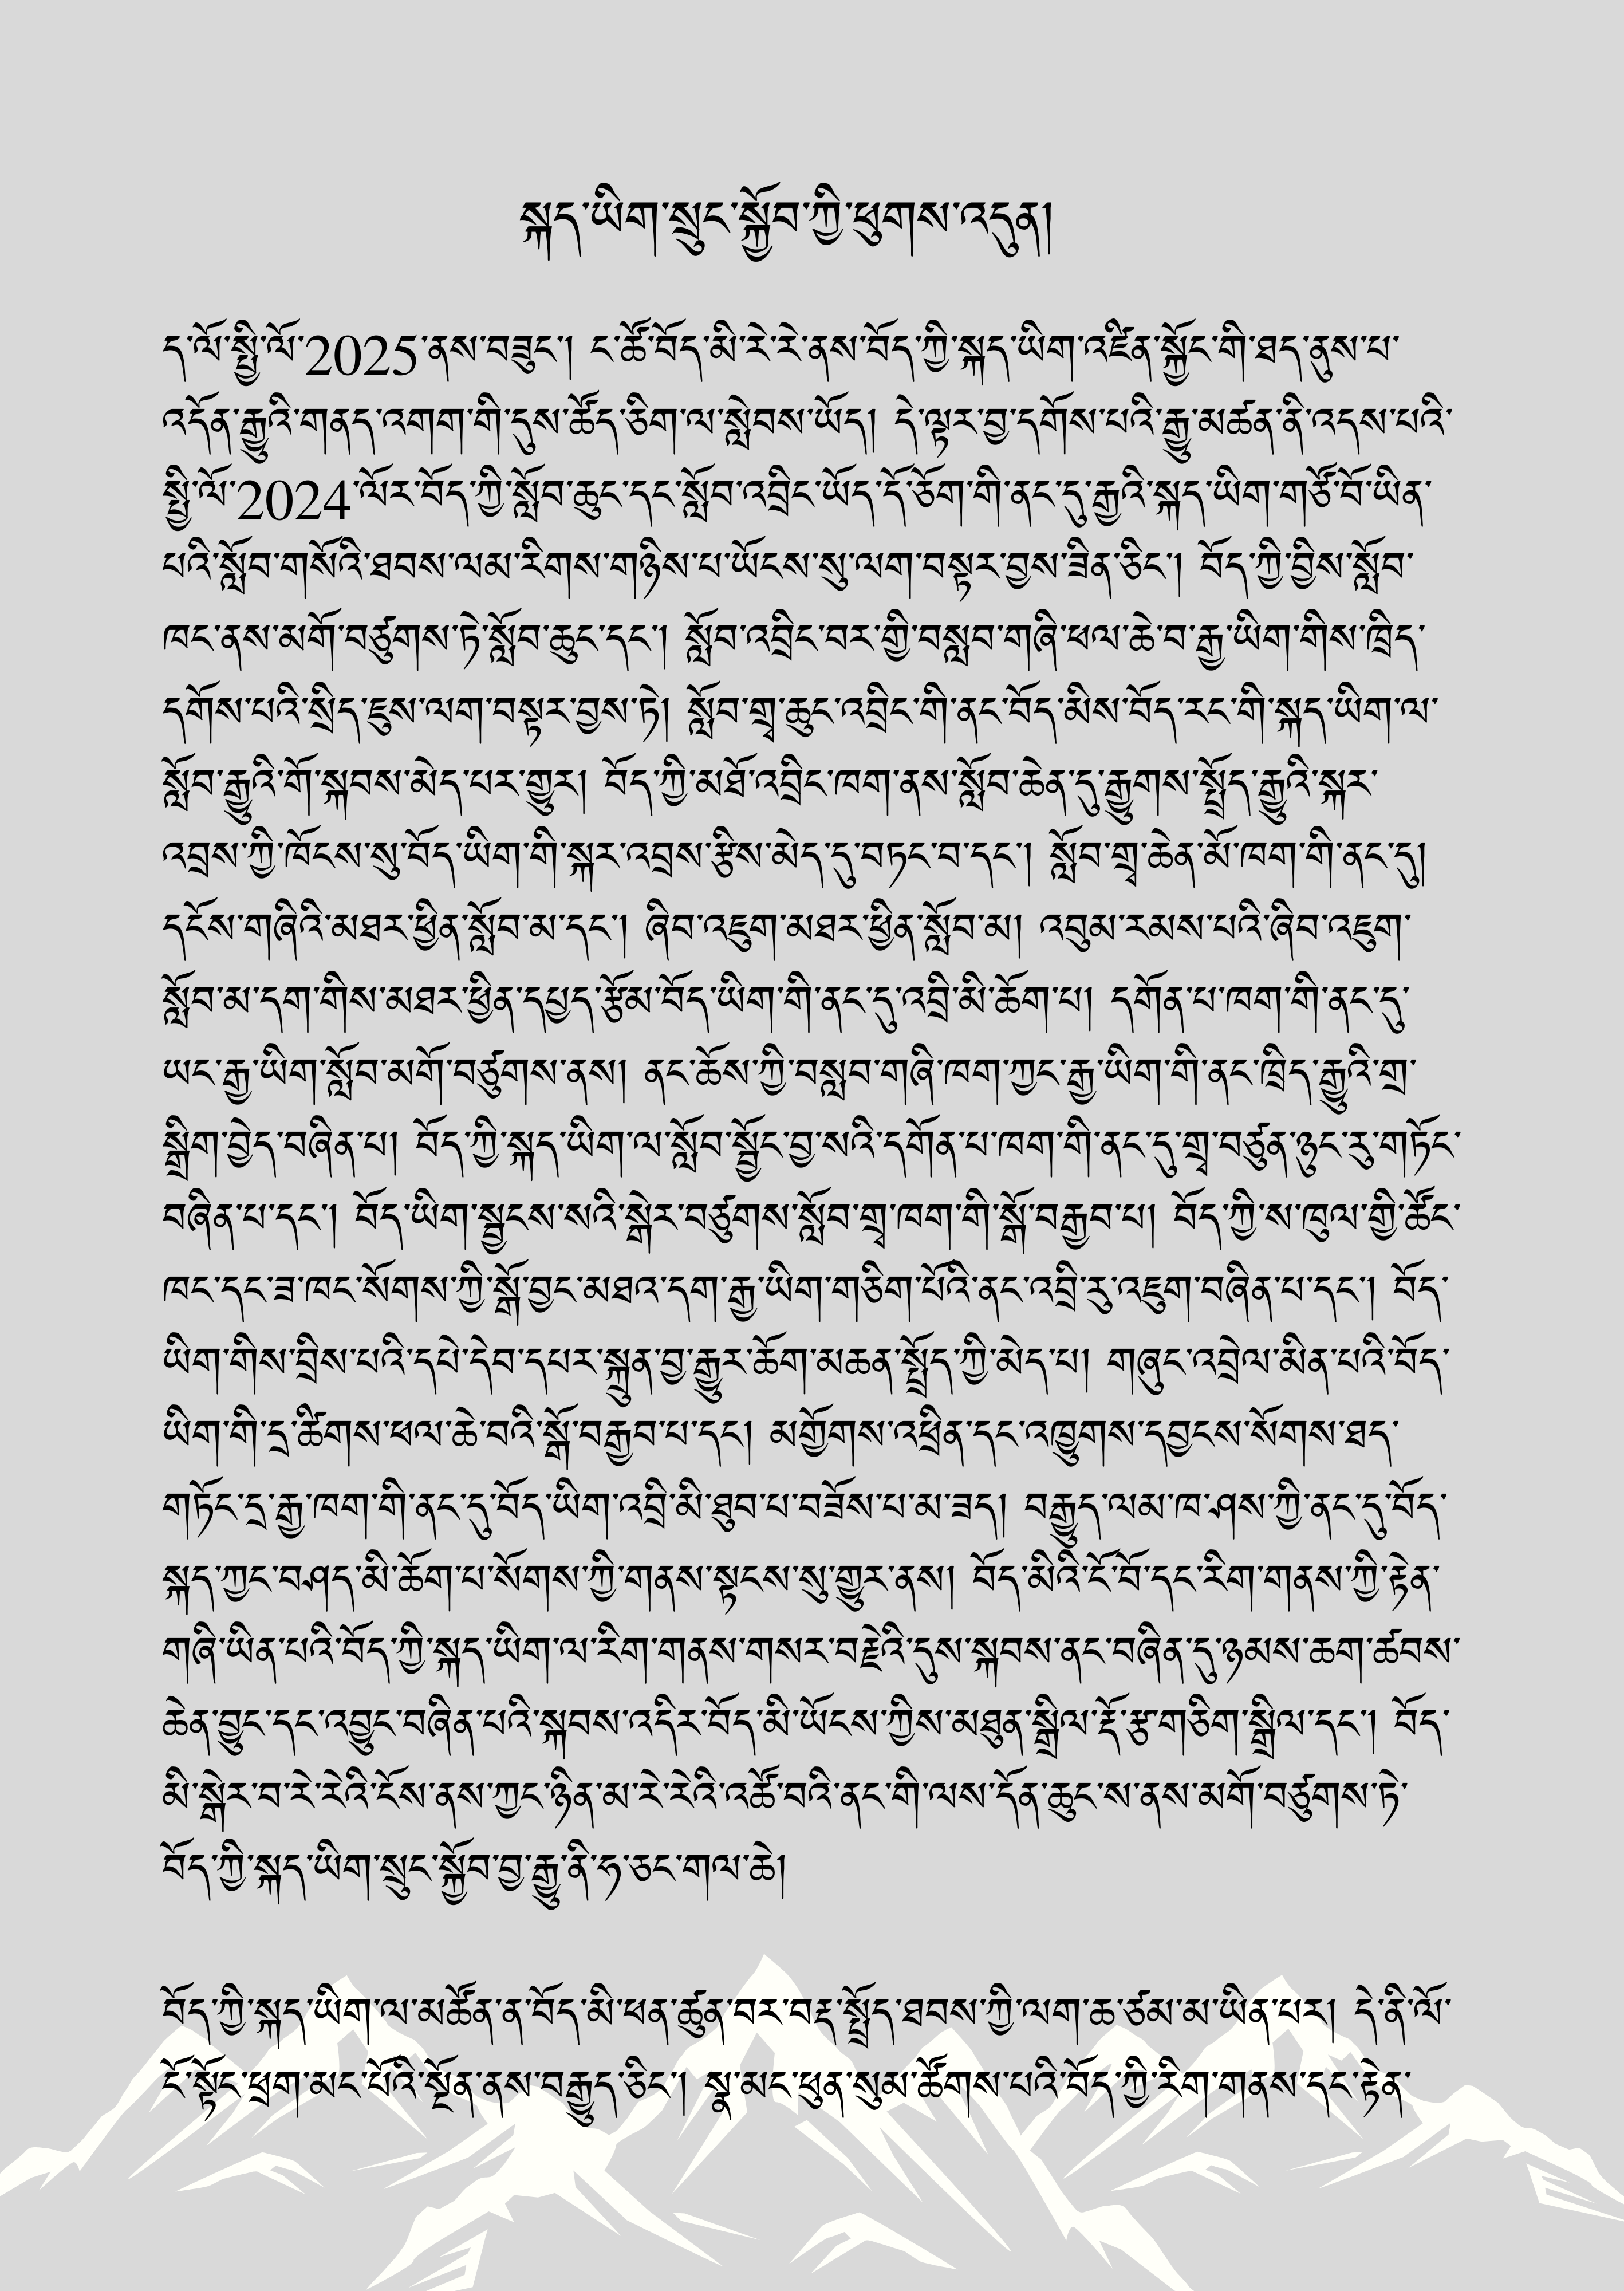 སྐད་ཡིག་སྲུང་སྐྱོབ་ཀྱི་ཕུགས་འདུན།
ད་ལོ་སྤྱི་ལོ་2025་ནས་བཟུང་། ང་ཚོ་བོད་མི་རེ་རེ་ནས་བོད་ཀྱི་སྐད་ཡིག་འཛིན་སྐྱོང་གི་ཐད་ནུས་པ་
འདོན་རྒྱུའི་གནད་འགག་གི་དུས་ཚོད་ཅིག་ལ་སླེབས་ཡོད། དེ་ལྟར་བྱ་དགོས་པའི་རྒྱུ་མཚན་ནི་འདས་པའི་
སྤྱི་ལོ་2024་ལོར་བོད་ཀྱི་སློབ་ཆུང་དང་སློབ་འབྲིང་ཡོད་དོ་ཅོག་གི་ནང་དུ་རྒྱའི་སྐད་ཡིག་གཙོ་བོ་ཡིན་
པའི་སློབ་གསོའི་ཐབས་ལམ་རིགས་གཉིས་པ་ཡོངས་སུ་ལག་བསྟར་བྱས་ཟིན་ཅིང་། བོད་ཀྱི་བྱིས་སློབ་
ཁང་ནས་མགོ་བཙུགས་ཏེ་སློབ་ཆུང་དང་། སློབ་འབྲིང་བར་གྱི་བསླབ་གཞི་ཕལ་ཆེ་བ་རྒྱ་ཡིག་གིས་ཁྲིད་
དགོས་པའི་སྲིད་ཇུས་ལག་བསྟར་བྱས་ཏེ། སློབ་གྲྭ་ཆུང་འབྲིང་གི་ནང་བོད་མིས་བོད་རང་གི་སྐད་ཡིག་ལ་
སློབ་རྒྱུའི་གོ་སྐབས་མེད་པར་གྱུར། བོད་ཀྱི་མཐོ་འབྲིང་ཁག་ནས་སློབ་ཆེན་དུ་རྒྱུགས་སྤྲོད་རྒྱུའི་སྐར་
འབྲས་ཀྱི་ཁོངས་སུ་བོད་ཡིག་གི་སྐར་འབྲས་རྩིས་མེད་དུ་བཏང་བ་དང་། སློབ་གྲྭ་ཆེན་མོ་ཁག་གི་ནང་དུ།
དངོས་གཞིའི་མཐར་ཕྱིན་སློབ་མ་དང་། ཞིབ་འཇུག་མཐར་ཕྱིན་སློབ་མ། འབུམ་རམས་པའི་ཞིབ་འཇུག་
སློབ་མ་དག་གིས་མཐར་ཕྱིན་དཔྱད་རྩོམ་བོད་ཡིག་གི་ནང་དུ་འབྲི་མི་ཆོག་པ། དགོན་པ་ཁག་གི་ནང་དུ་
ཡང་རྒྱ་ཡིག་སློབ་མགོ་བཙུགས་ནས། ནང་ཆོས་ཀྱི་བསླབ་གཞི་ཁག་ཀྱང་རྒྱ་ཡིག་གི་ནང་ཁྲིད་རྒྱུའི་གྲ་
སྒྲིག་བྱེད་བཞིན་པ། བོད་ཀྱི་སྐད་ཡིག་ལ་སློབ་སྦྱོང་བྱ་སའི་དགོན་པ་ཁག་གི་ནང་དུ་གྲྭ་བཙུན་ཉུང་རུ་གཏོང་
བཞིན་པ་དང་། བོད་ཡིག་སྦྱངས་སའི་སྒེར་བཙུགས་སློབ་གྲྭ་ཁག་གི་སྒོ་བརྒྱབ་པ། བོད་ཀྱི་ས་ཁུལ་གྱི་ཚོང་
ཁང་དང་ཟ་ཁང་སོགས་ཀྱི་སྒོ་བྱང་མཐའ་དག་རྒྱ་ཡིག་གཅིག་པོའི་ནང་འབྲི་རུ་འཇུག་བཞིན་པ་དང་། བོད་
ཡིག་གིས་བྲིས་པའི་དཔེ་དེབ་དཔར་སྐྲུན་བྱ་རྒྱུར་ཆོག་མཆན་སྤྲོད་ཀྱི་མེད་པ། གཞུང་འབྲེལ་མིན་པའི་བོད་
ཡིག་གི་དྲ་ཚིགས་ཕལ་ཆེ་བའི་སྒོ་བརྒྱབ་པ་དང། མགྱོགས་འཕྲིན་དང་འཁྱུགས་དབྱངས་སོགས་ཐད་
གཏོང་དྲ་རྒྱ་ཁག་གི་ནང་དུ་བོད་ཡིག་འབྲི་མི་ཐུབ་པ་བཟོས་པ་མ་ཟད། བརྒྱུད་ལམ་ཁ་ཤས་ཀྱི་ནང་དུ་བོད་
སྐད་ཀྱང་བཤད་མི་ཆོག་པ་སོགས་ཀྱི་གནས་སྟངས་སུ་གྱུར་ནས། བོད་མིའི་ངོ་བོ་དང་རིག་གནས་ཀྱི་རྟེན་
གཞི་ཡིན་པའི་བོད་ཀྱི་སྐད་ཡིག་ལ་རིག་གནས་གསར་བརྗེའི་དུས་སྐབས་ནང་བཞིན་དུ་ཉམས་ཆག་ཚབས་
ཆེན་བྱུང་དང་འབྱུང་བཞིན་པའི་སྐབས་འདིར་བོད་མི་ཡོངས་ཀྱིས་མཐུན་སྒྲིལ་རྡོ་རྩ་གཅིག་སྒྲིལ་དང་། བོད་
མི་སྒེར་བ་རེ་རེའི་ངོས་ནས་ཀྱང་ཉིན་མ་རེ་རེའི་འཚོ་བའི་ནང་གི་ལས་དོན་ཆུང་ས་ནས་མགོ་བཙུགས་ཏེ་
བོད་ཀྱི་སྐད་ཡིག་སྲུང་སྐྱོབ་བྱ་རྒྱུ་ནི་ཧ་ཅང་གལ་ཆེ།
བོད་ཀྱི་སྐད་ཡིག་ལ་མཚོན་ན་བོད་མི་ཕན་ཚུན་བར་བརྡ་སྤྲོད་ཐབས་ཀྱི་ལག་ཆ་ཙམ་མ་ཡིན་པར། དེ་ནི་ལོ་
ངོ་སྟོང་ཕྲག་མང་པོའི་སྔོན་ནས་བརྒྱུད་ཅིང་། སྣ་མང་ཕུན་སུམ་ཚོགས་པའི་བོད་ཀྱི་རིག་གནས་དང་རྟེན་